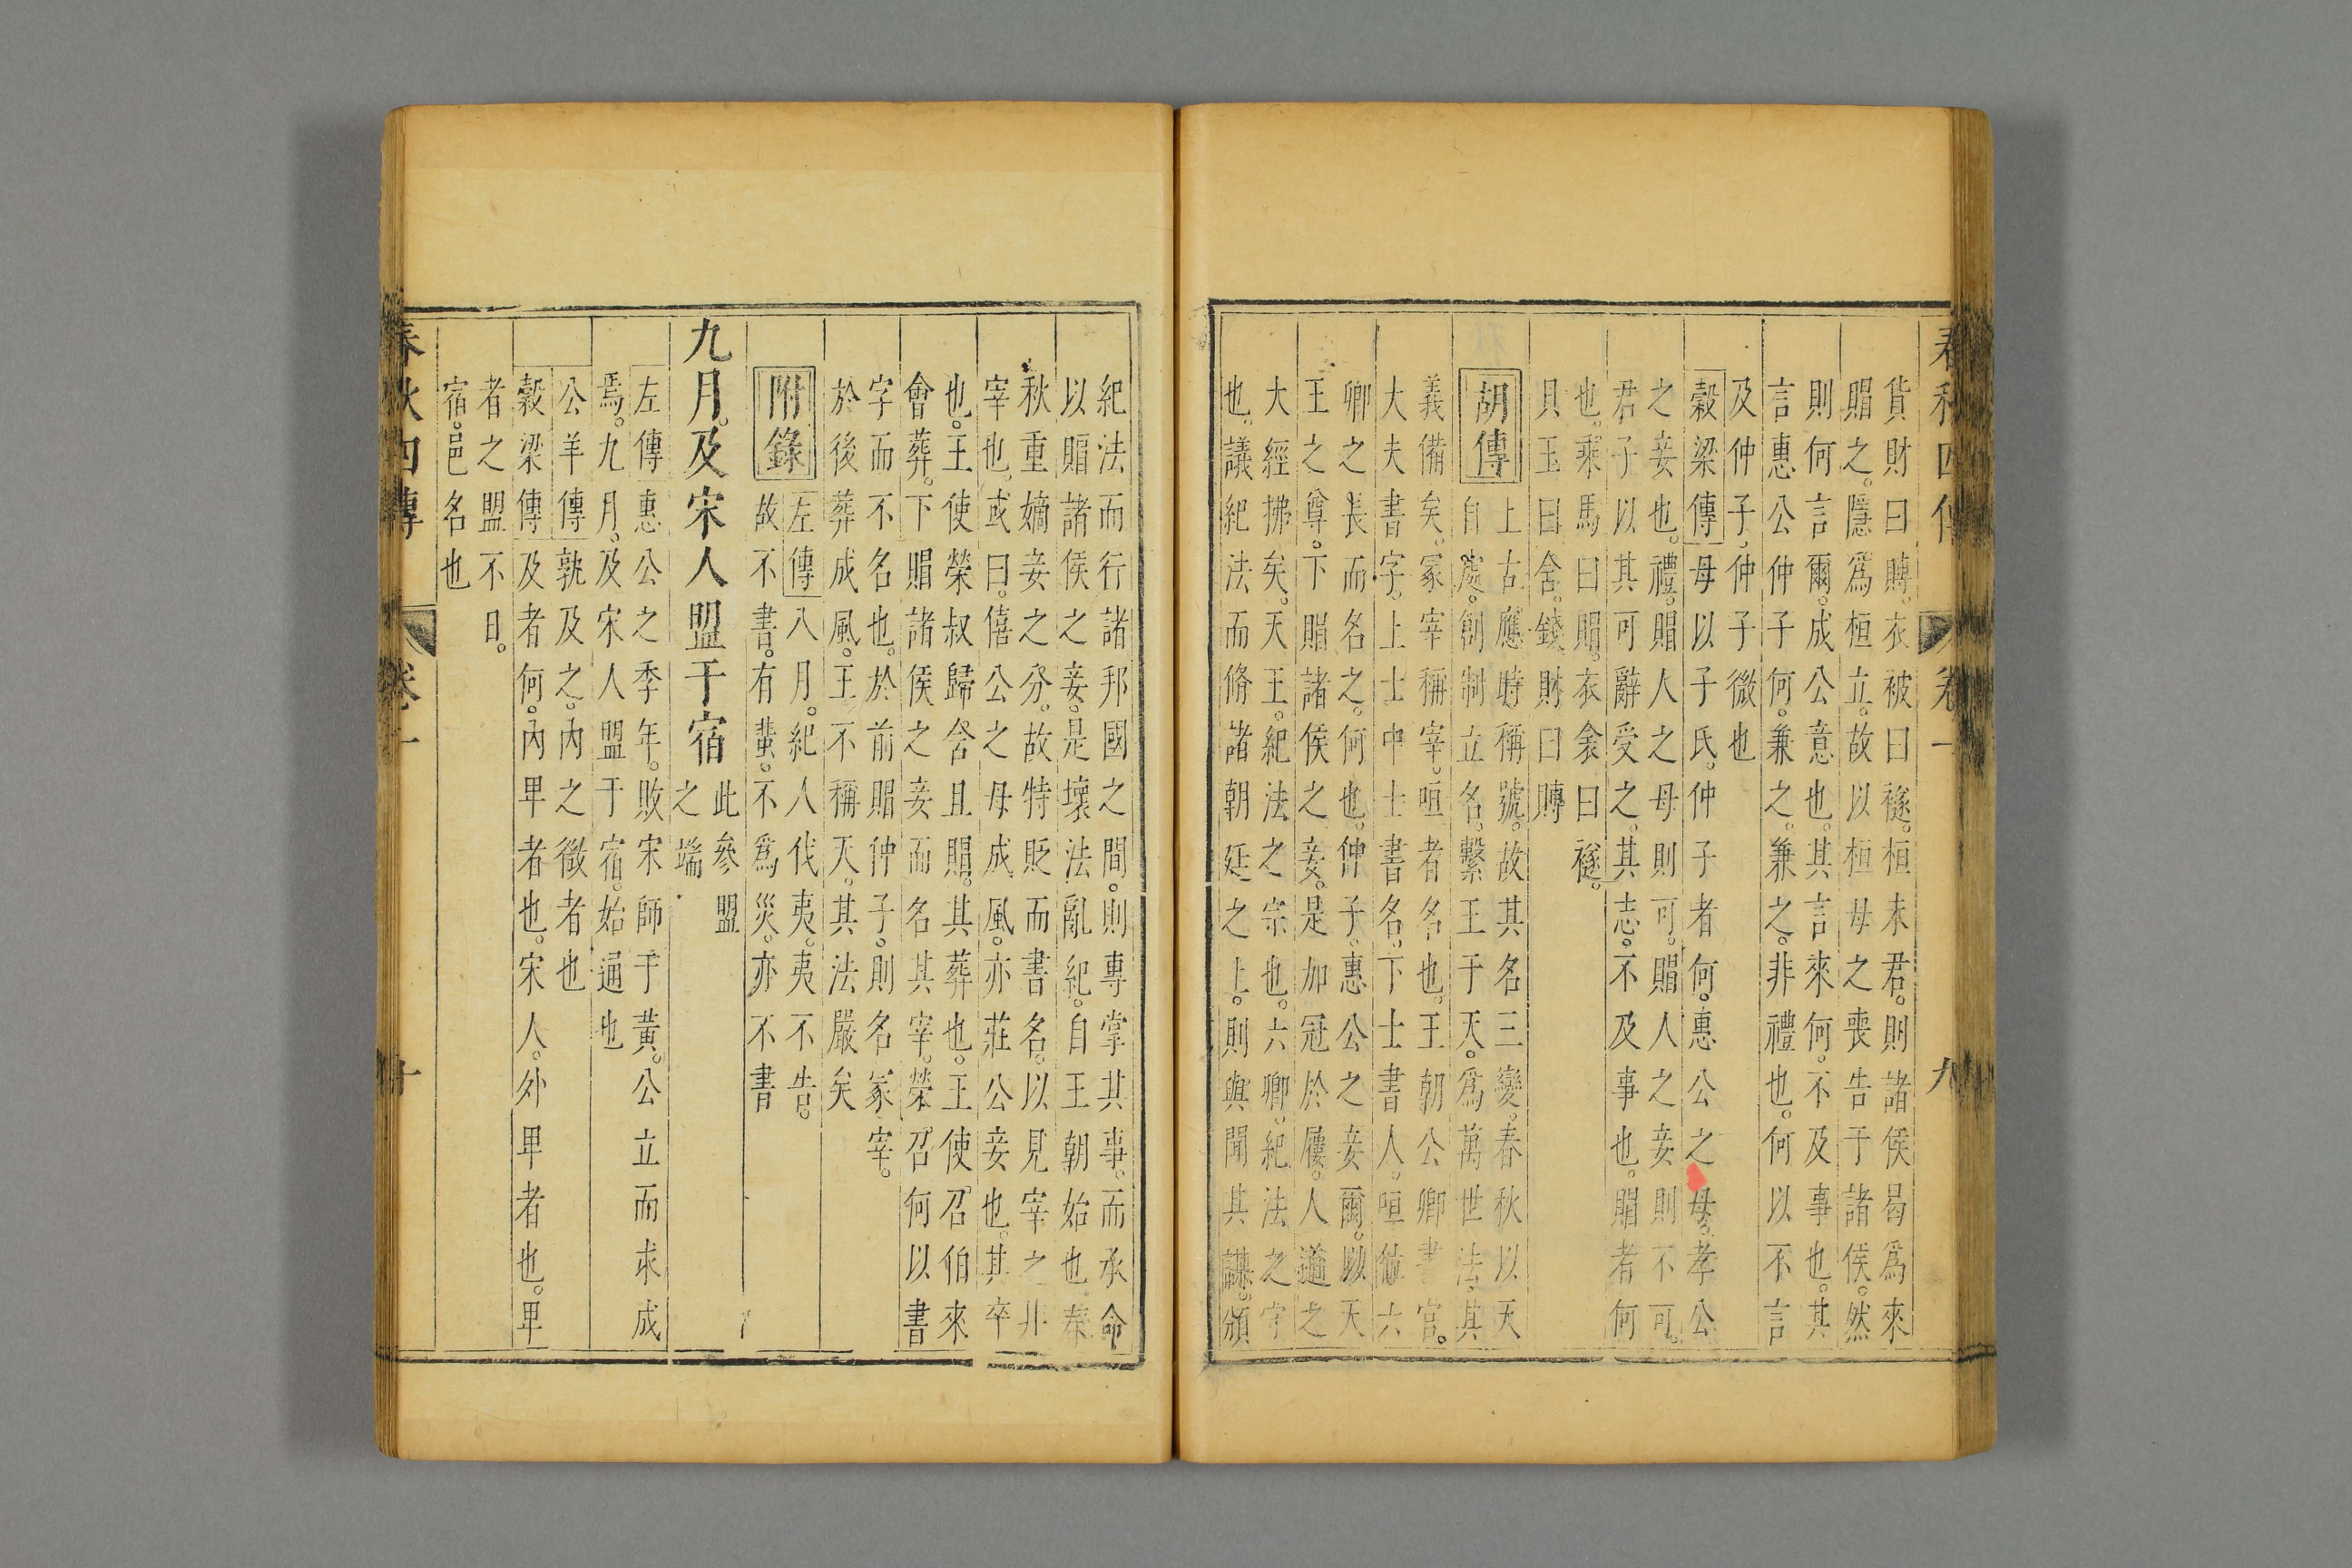 春秋四傳 卷一 九
貨財曰賻。衣被曰襚。桓未君。則諸侯曷爲來
賵之。隱爲桓立。故以桓母之喪告于諸侯。然
則何言爾。成公意也。其言來何。不及事也。其
言惠公仲子何。兼之。兼之。非禮也。何以不言
及仲子。仲子微也
穀梁傳母以子氏。仲子者何。惠公之母。孝公
之妾也。禮。賵人之母則可。賵人之妾則不可。
君子以其可辭受之。其志。不及事也。賵者何
也。乘馬曰賵。衣衾曰襚。
貝玉曰含。錢財曰賻
胡傳
上古應時稱號。故其名三變。春秋以天
自處。創制立名。繫王于天。爲萬世法。其
義備矣。冢宰稱宰。咺者名也。王朝公卿書官。
大夫書字。上士中士書名。下士書人。咺位六
卿之長而名之。何也。仲子。惠公之妾爾。以天
王之尊。下賵諸侯之妾。是加冠於屨。人道之
大經拂矣。天王。紀法之宗也。六卿。紀法之守
也。議紀法而脩諸朝廷之上。則與聞其謀。頒
紀法而行諸邦國之間。則專掌其事。而承命
以賵諸侯之妾。是壞法亂紀。自王朝始也。春
秋重嫡妾之分。故特貶而書名。以見宰之非
宰也。或曰。僖公之母成風。亦莊公妾也。其卒
也。王使榮叔歸含且賵。其葬也。王使召伯來
會葬。下賵諸侯之妾而名其宰。榮召何以書
字而不名也。於前賵仲子。則名冢宰。
於後葬成風。王不稱天。其法嚴矣
附錄
左傳八月。紀人伐夷。夷不告。
故不書。有蜚。不爲災。亦不書
九月。及宋人盟于宿
此參盟
之端
左傳惠公之季年。敗宋師于黃。公立而求成
焉。九月。及宋人盟于宿。始通也
公羊傳孰及之。內之微者也
穀梁傳及者何。內卑者也。宋人。外卑者也。卑
者之盟不日。
宿。邑名也
春秋四傳 卷一 十